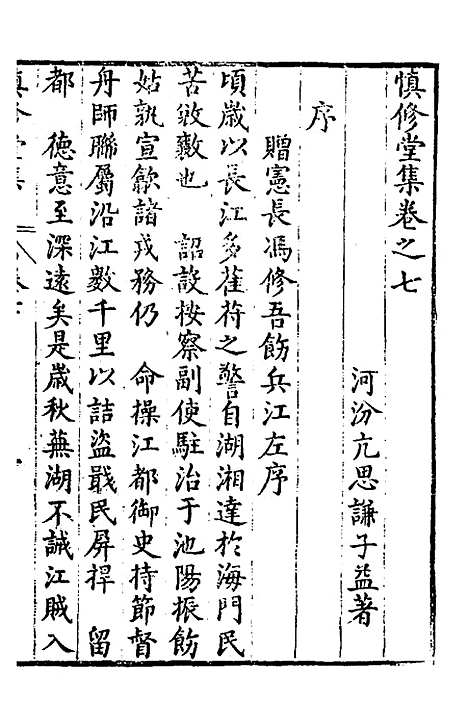 慎修堂集卷之七
河汾亢思謙子益著
序
贈憲長馮修吾飭兵江左序
頃歲以長江多萑苻之警自湖湘達於海門民
苦敓敺也 詔設按察副使駐治于池陽振飭
姑孰宣歙諸戎務仍 命操江都御史持節督
舟師聯屬沿江數千里以詰盜戢民屏捍 留
都 德意至深遠矣是歲秋蕪湖不誡江賊入